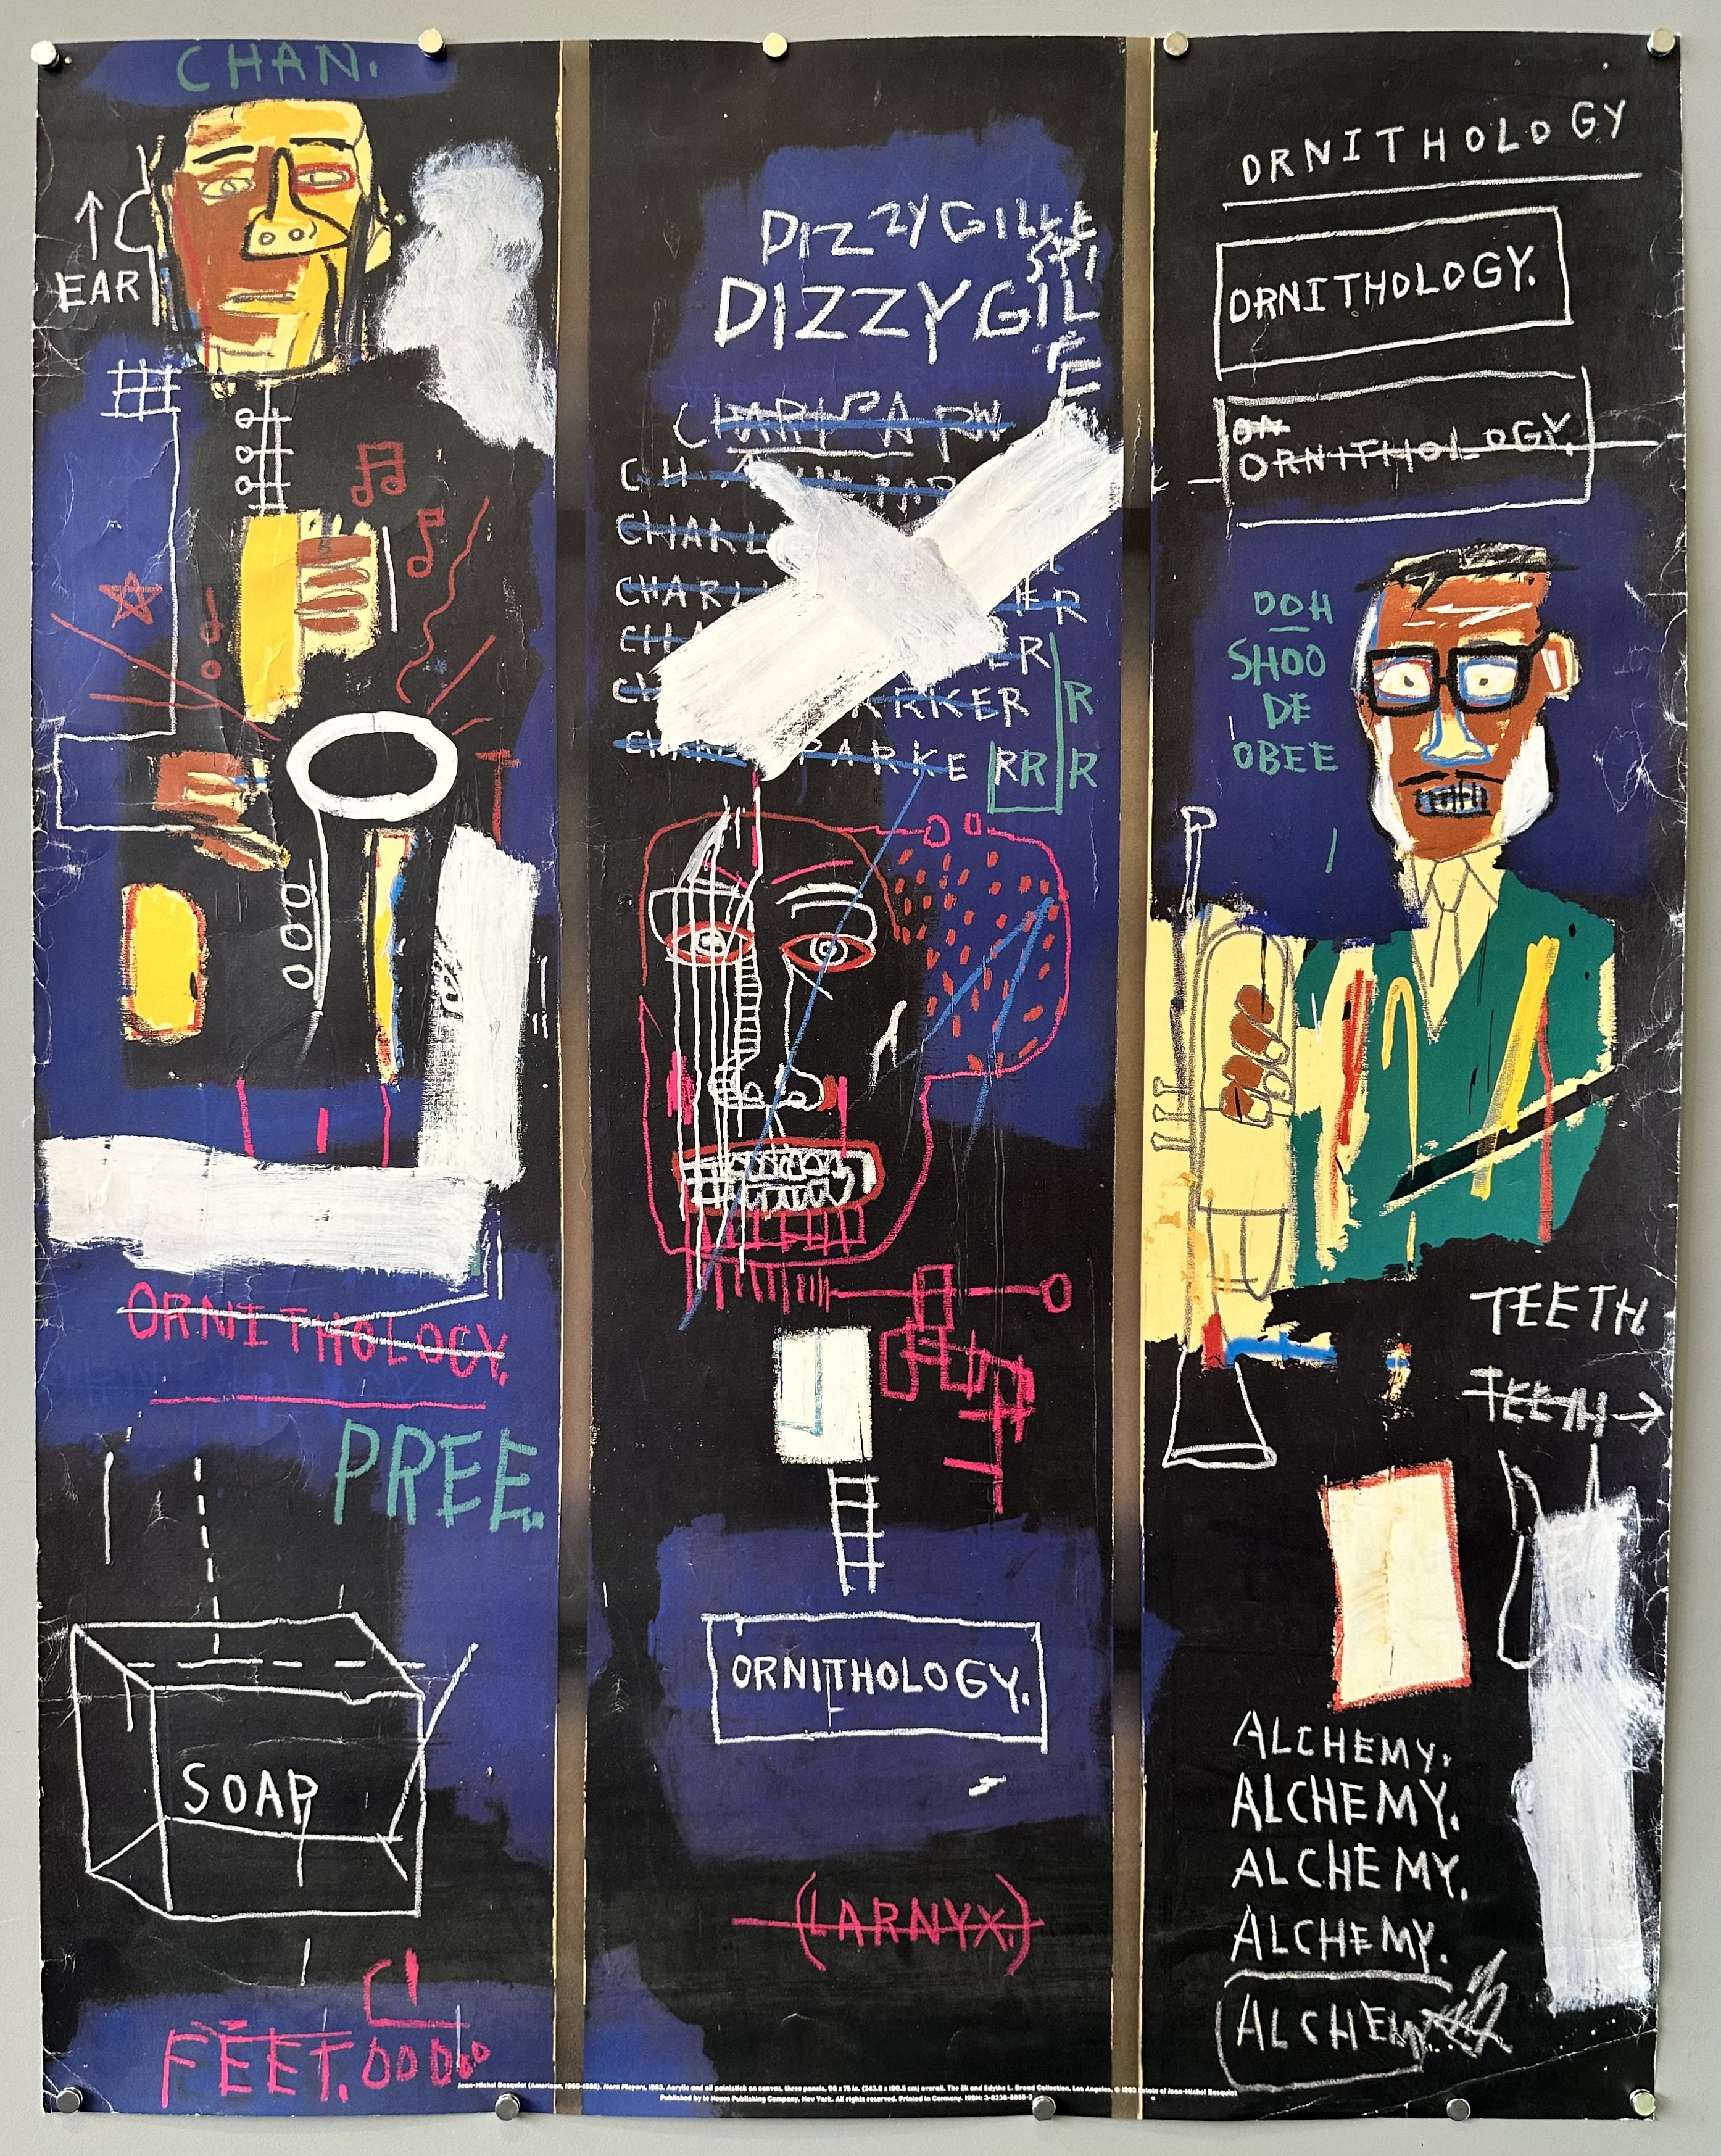 CHAN.
EAR
ORNITHOLOGY.
PREE.
SOAP
FEET.
DIZZY GILLE
SPI
DIZZY GIL
E
PARKER
R
PARKE RR R
ORNITHOLOGY.
(LARNYX.)
ORNITHOLOGY
ORNITHOLOGY.
ORNITHOLOGY.
DOH
SHOO
DE
OBEE
TEETH
TEETH
ALCHEMY.
ALCHEMY.
ALCHEMY.
ALCHEMY.
ALCHEMY
Jean-Michel Basquiat (American, 1960-1988), Horn Players, 1983. Acrylic and oil paintstick on canvas, three panels, 96 x 75 in. (243.8 x 190.5 cm) overall. The Eli and Edythe L. Broad Collection, Los Angeles. © 1993 Estate of Jean-Michel Basquiat
Published by te Neues Publishing Company, New York. All rights reserved. Printed in Germany.